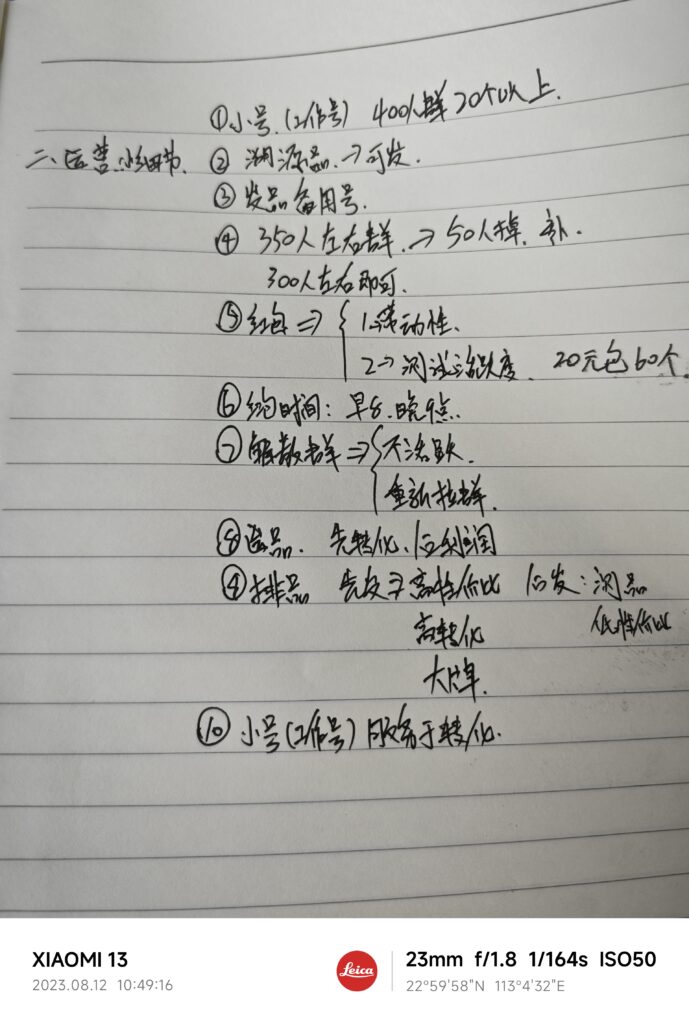 ①小号.(工作号) 400人群 20个以上.
二、运营小细节. ② 溯源品.→可发.
③ 发品备用号.
④ 350人左右群.→50人掉.补.
300人左右即可.
⑤ 红包⇒ { 1.带动性.
2→测试活跃度. 20元包60个.
⑥ 约时间: 早8.晚9点.
⑦ 解散群⇒ { 不活跃.
重新拉群.
⑧ 选品. 先转化.后利润
④ 排品 先发⇒高性价比 后发: 润品
高转化 低性价比
大牌.
⑩ 小号(工作号)服务于转化.
XIAOMI 13
2023.08.12 10:49:16
Leica
23mm f/1.8 1/164s ISO50
22°59'58"N 113°4'32"E